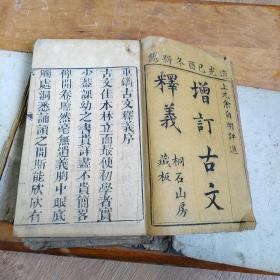 道光己酉冬新鐫
上元余自明評選
增訂古文
釋義
桐石山房
藏板
重鐫古文釋義序
古文佳本林立而最便初學者實
少蓋課幼之書貴詳盡不貴簡畧
俾開卷瞭然毫無遺義胸中眼底
觸處洞悉誦讀之間斯能欣欣有